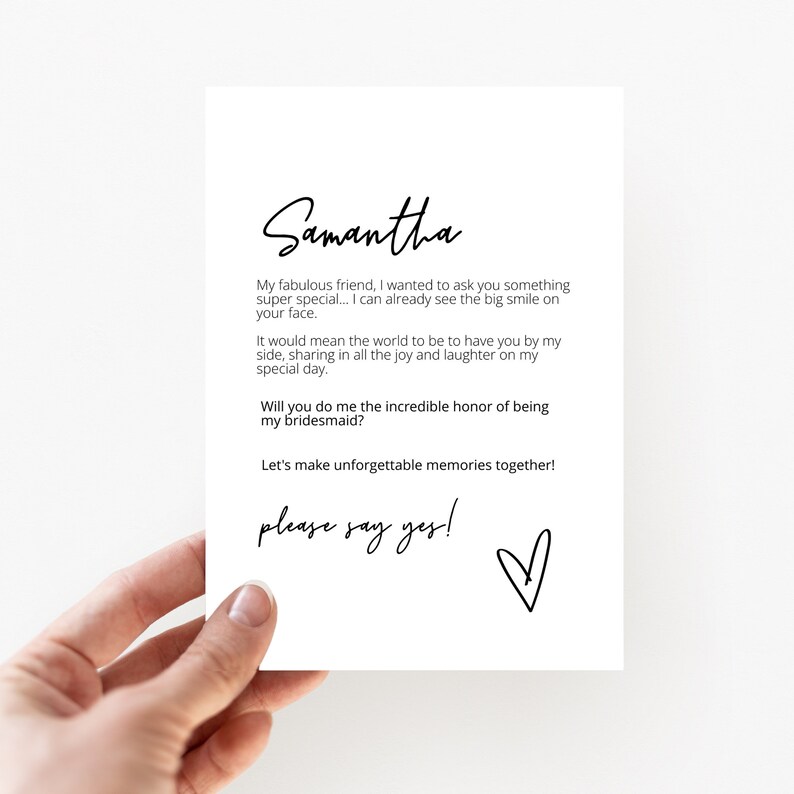 Samantha
My fabulous friend, I wanted to ask you something
super special... I can already see the big smile on
your face.
It would mean the world to be to have you by my
side, sharing in all the joy and laughter on my
special day.
Will you do me the incredible honor of being
my bridesmaid?
Let's make unforgettable memories together!
please say yes!